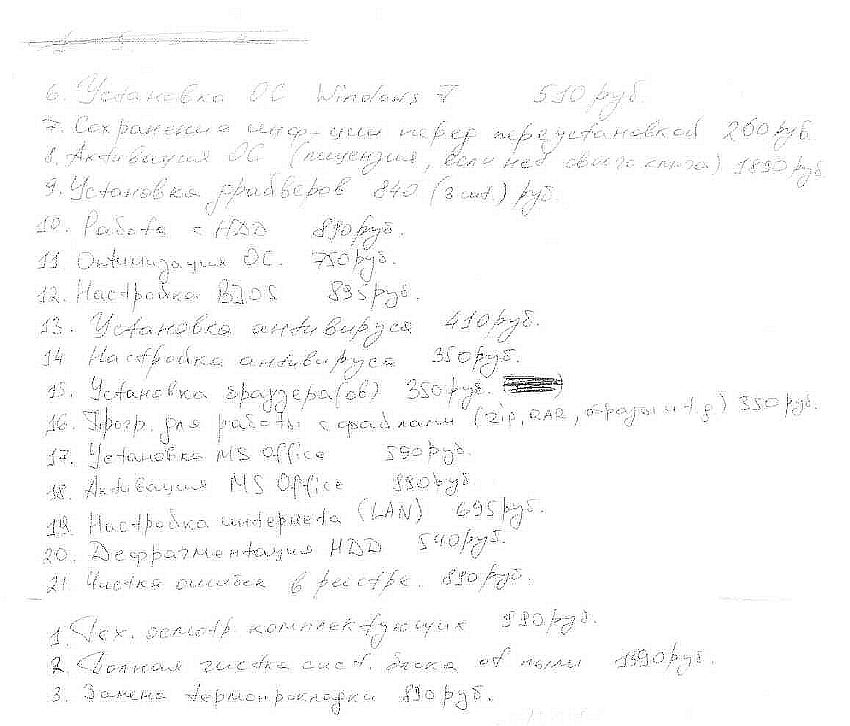 6. Установка ОС Windows 7 510 руб.
7. Сохранение инф-ции перед преустановкой 260 руб
8. Активация ОС (лицензия, если нет своего ключа) 1890 руб
9. Установка драйверов 840 (за шт.) руб.
10. Работа с HDD 890 руб.
11 Оптимизация ОС. 750 руб.
12. Настройка BIOS 895 руб.
13. Установка антивируса 410 руб.
14 Настройка антивируса 350 руб.
15. Установка браузера(ов) 350 руб.
16. Прогр. для работы с файлами (Zip, RAR, образы и т.д) 350 руб.
17. Установка MS Office 590 руб.
18. Активация MS Office 990 руб.
19. Настройка интернета (LAN) 695 руб.
20. Дефрагментация HDD 540 руб.
21 Чистка ошибок в реестре. 890 руб.
1. Тех. осмотр комплектующих 990 руб.
2. Полная чистка сист. блока от пыли 1390 руб.
3. Замена термопрокладки 890 руб.